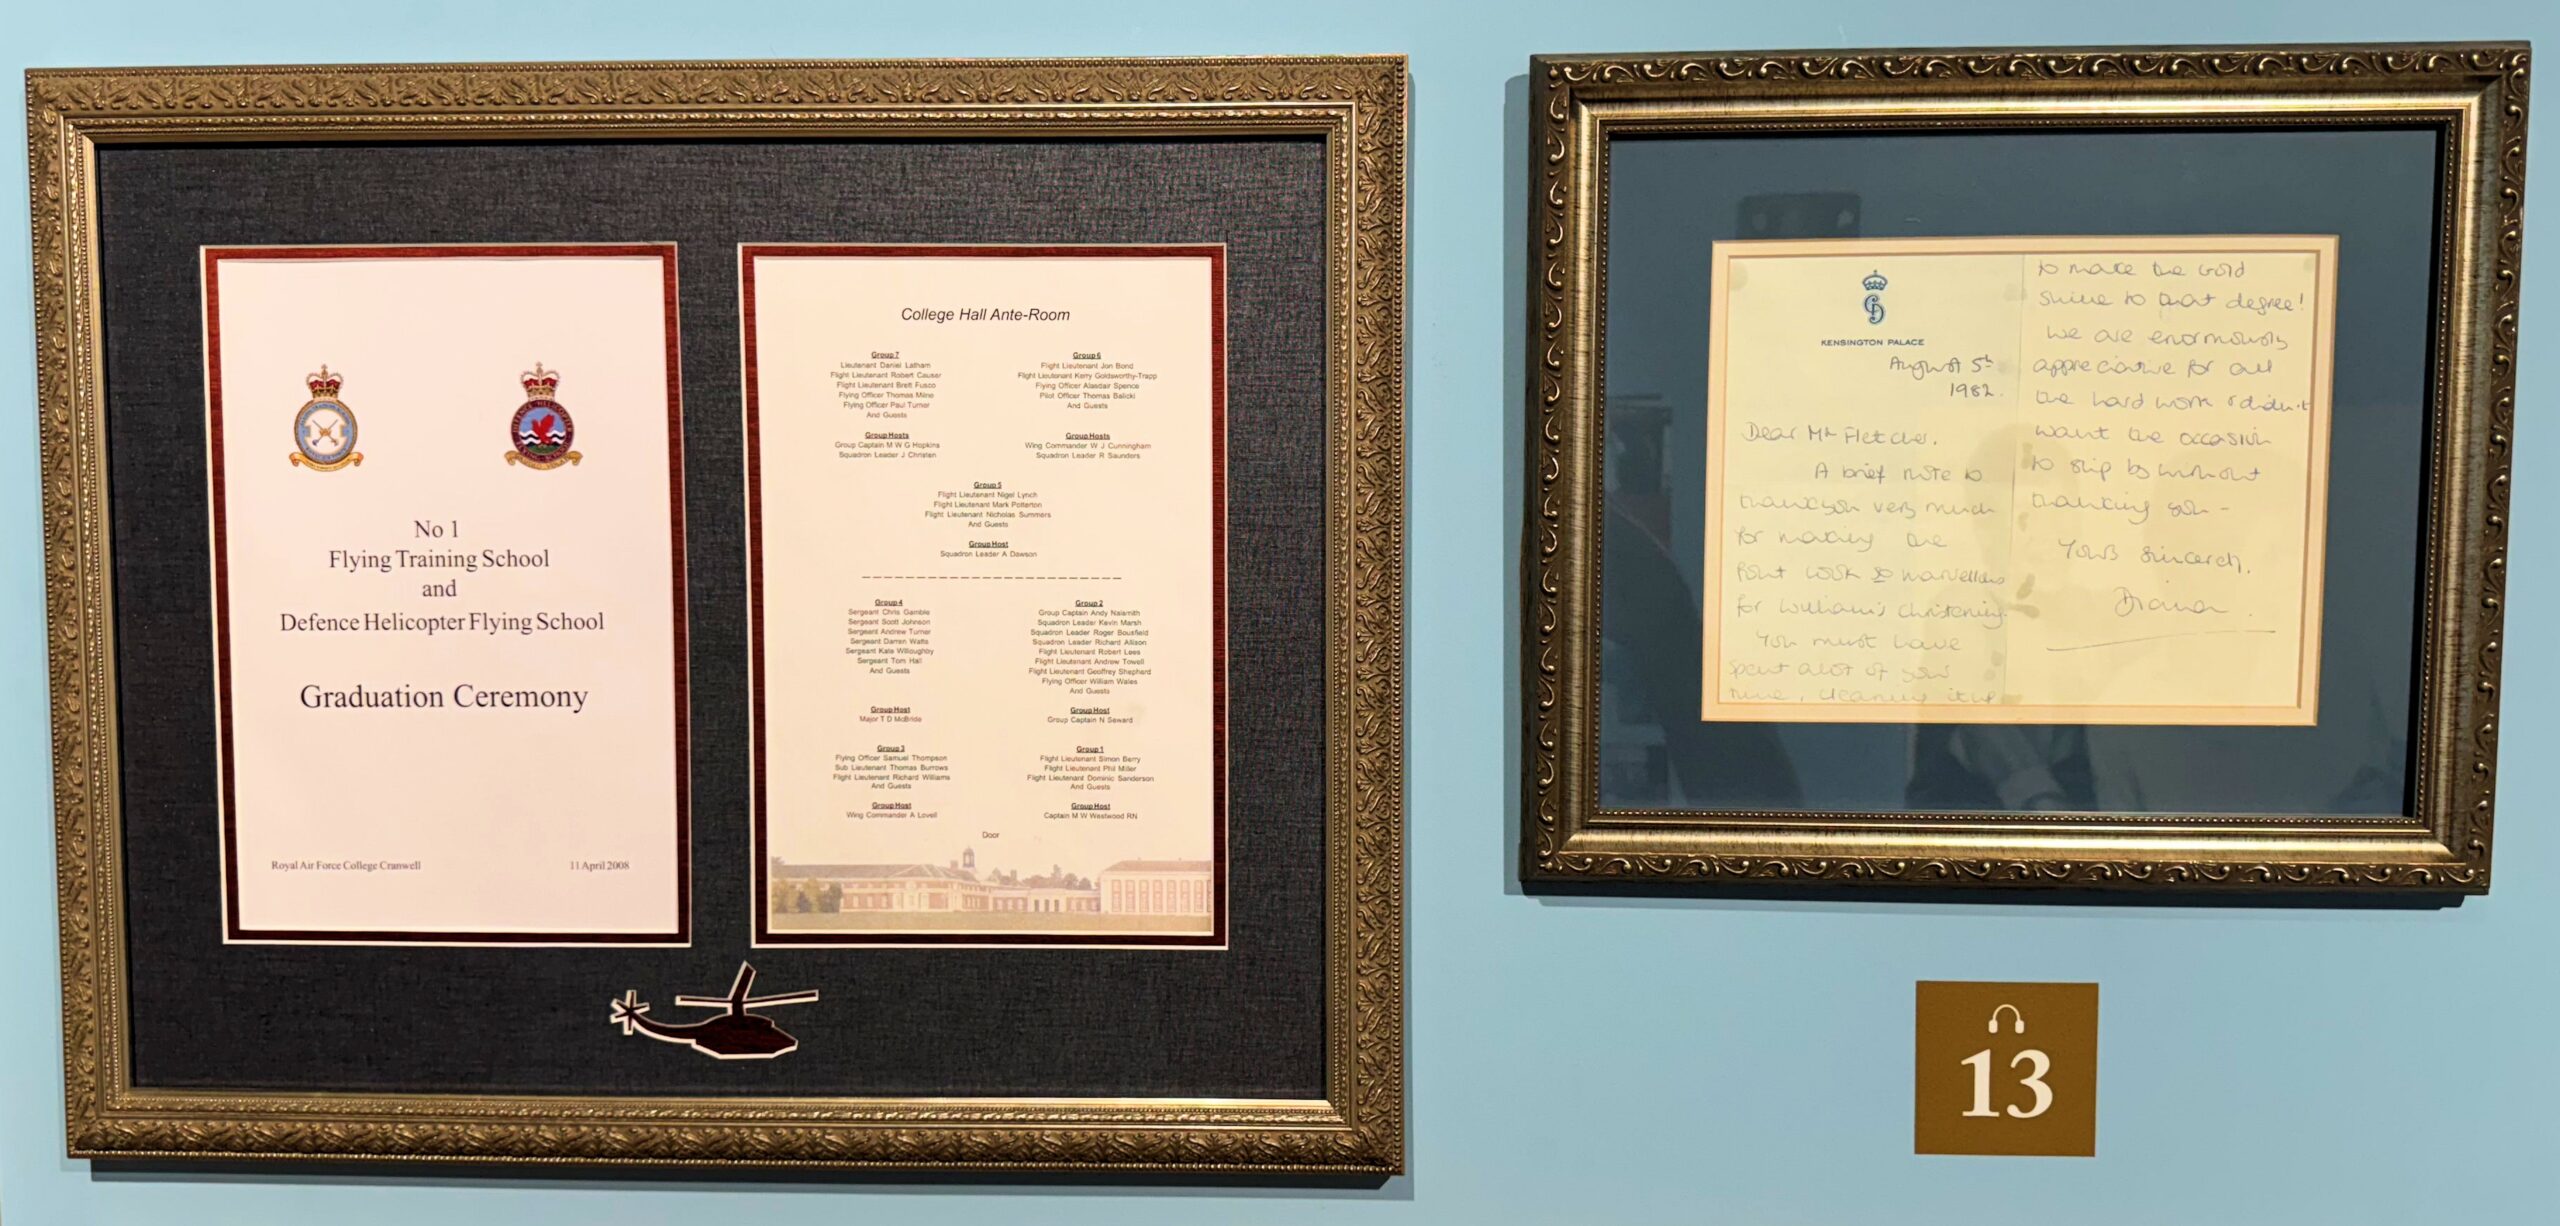 No 1
Flying Training School
and
Defence Helicopter Flying School
Graduation Ceremony
Royal Air Force College Cranwell
11 April 2008
College Hall Ante-Room
Group 7
Lieutenant Daniel Latham
Flight Lieutenant Robert Causer
Flight Lieutenant Brett Fusco
Flying Officer Thomas Milne
Flying Officer Paul Turner
And Guests
Group Hosts
Group Captain M W G Hopkins
Squadron Leader J Christen
Group 6
Flight Lieutenant Jon Bond
Flight Lieutenant Kerry Goldsworthy-Trapp
Flying Officer Alasdair Spence
Pilot Officer Thomas Balicki
And Guests
Group Hosts
Wing Commander W J Cunningham
Squadron Leader R Saunders
Group 5
Flight Lieutenant Nigel Lynch
Flight Lieutenant Mark Potterton
Flight Lieutenant Nicholas Summers
And Guests
Group Host
Squadron Leader A Dawson
Group 4
Sergeant Chris Gamble
Sergeant Scott Johnson
Sergeant Andrew Turner
Sergeant Darren Watts
Sergeant Kate Willoughby
Sergeant Tom Hall
And Guests
Group Host
Major T D McBride
Group 2
Group Captain Andy Naismith
Squadron Leader Kevin Marsh
Squadron Leader Roger Bousfield
Squadron Leader Richard Allison
Flight Lieutenant Robert Lees
Flight Lieutenant Andrew Towell
Flight Lieutenant Geoffrey Shepherd
Flying Officer William Wales
And Guests
Group Host
Group Captain N Seward
Group 3
Flying Officer Samuel Thompson
Sub Lieutenant Thomas Burrows
Flight Lieutenant Richard Williams
And Guests
Group Host
Wing Commander A Lovell
Group 1
Flight Lieutenant Simon Berry
Flight Lieutenant Phil Miller
Flight Lieutenant Dominic Sanderson
And Guests
Group Host
Captain M W Westwood RN
Door
KENSINGTON PALACE
August 5th
1982.
Dear Mr Fletcher,
A brief note to
thankyou very much
for making the
font look so marvellous
for William's christening.
You must have
spent alot of your
time, cleaning it up
to make the gold
shine to that degree!
We are enormously
appreciative for all
the hard work & didn't
want the occasion
to slip by without
thanking you -
Yours sincerely,
Diana.
13